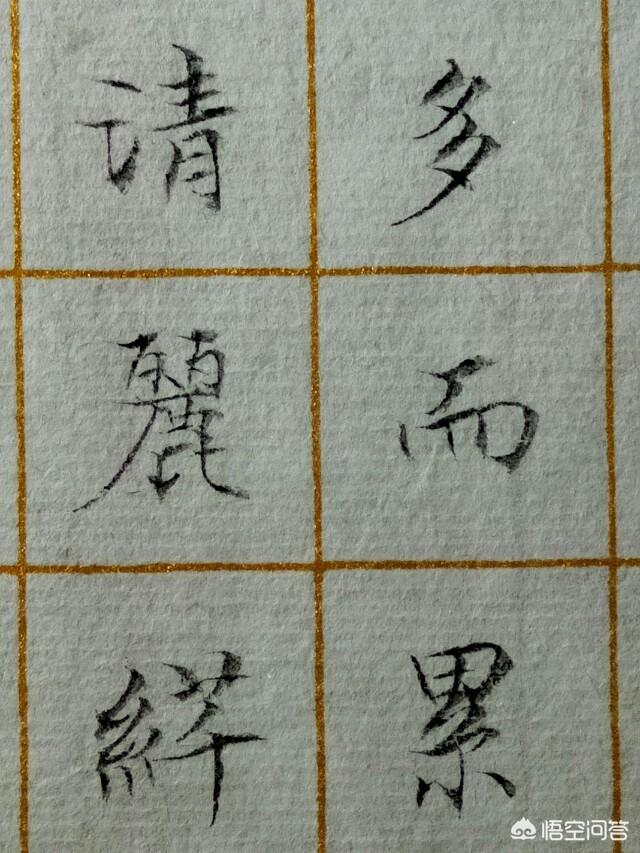 多而累
请麗
悟空问答